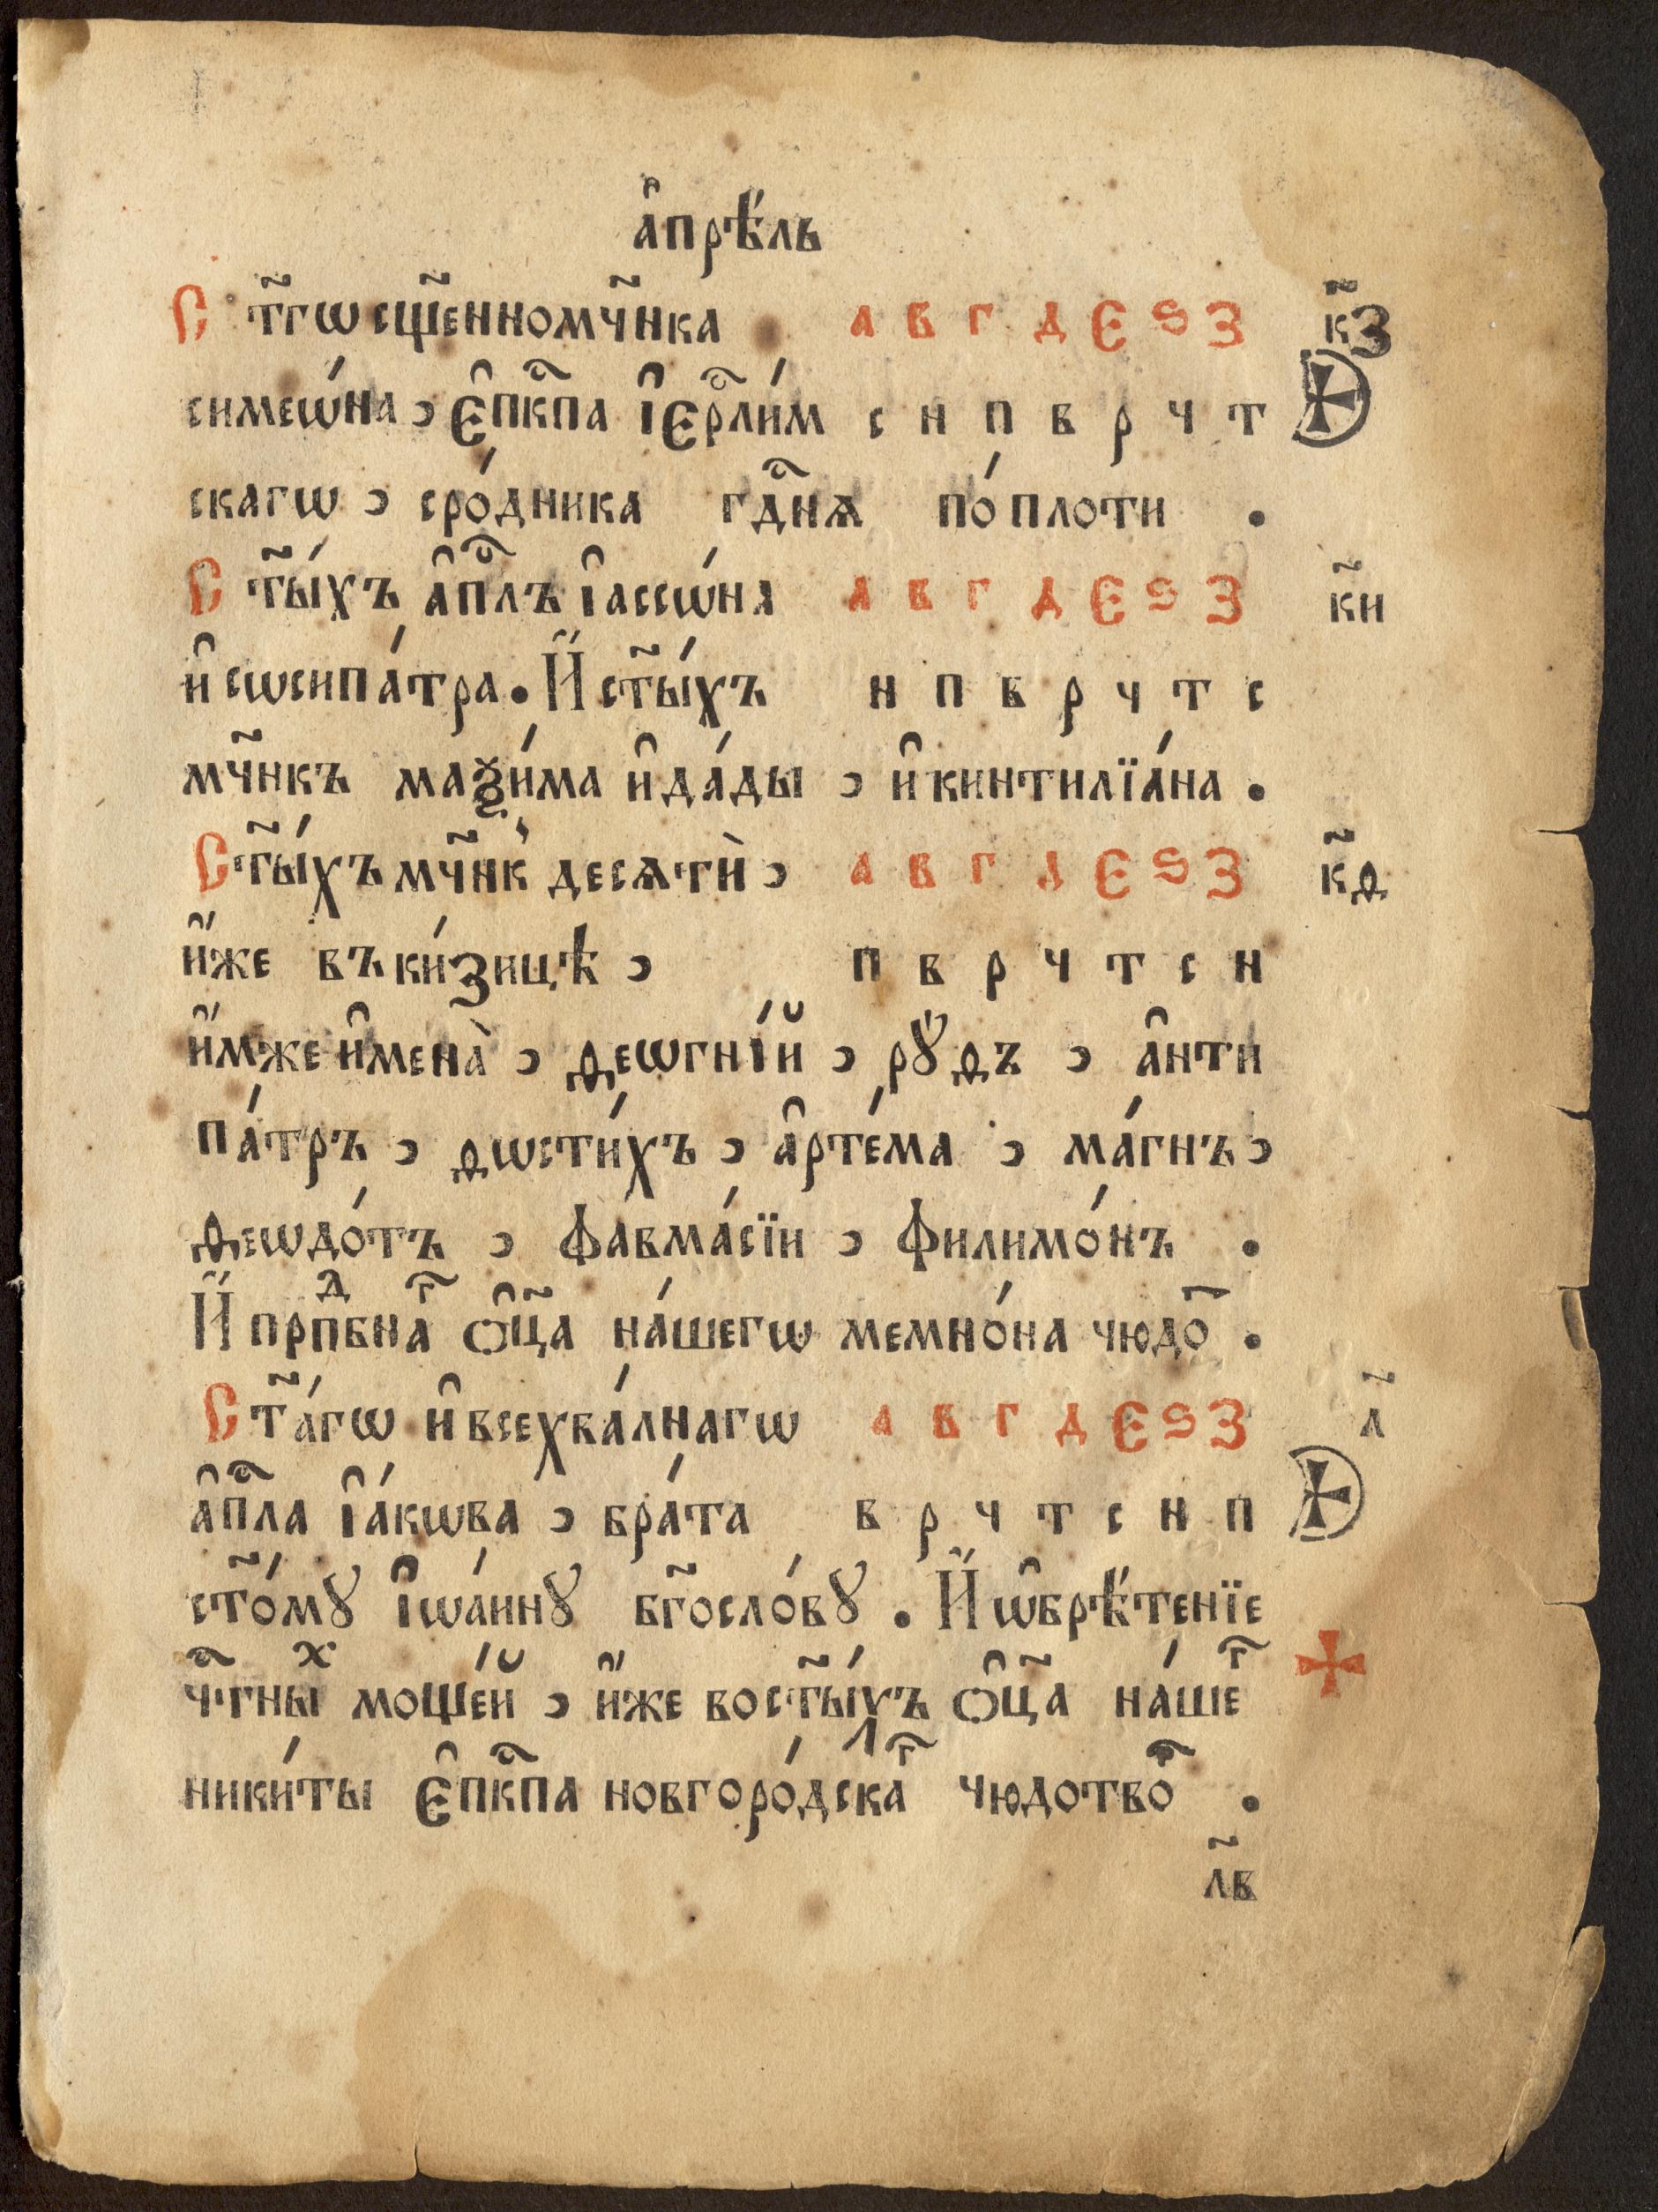 а҆прѣ́ль
Ст҃гѡ сщ҃е́нномч҃нка а в г д є ѕ з к҃з
симеѡ́на , є҆пⷭ҇кпа і҆єрⷭ҇ли́м с н п в р ч т
скагѡ , сро́дника гдⷭ҇нѧ по́ плоти .
Ст҃ы́хъ а҆пⷭ҇лъ і҆ассѡ́на а в г д є ѕ з к҃и
и҆ сѡсипа́тра . И҆́ ст҃ы́хъ н п в р ч т с
мч҃нкъ маѯи́ма и҆ да́ды , и҆ кинтилїа́на .
Ст҃ы́хъ мч҃нк десѧтѝ , а в г д є ѕ з к҃ѳ
и҆́же въ ки́зицѣ , п в р ч т с н
и҆́мже и҆мена̀ , ѳеѡгні́й , рꙋ́ѳъ , а҆нти
па́тръ , ѳѡсти́хъ , а҆рте́ма , ма́гнъ ,
ѳеѡдо́тъ , фавма́сїи , филимо́нъ .
И҆́ прпⷣбнаⷢ҇ ѻ҆ц҃а на́шегѡ мемно́на чюдо .
Ст҃а́гѡ и҆ всехва́лнагѡ а в г д є ѕ з л҃
а҆пⷭ҇ла і҆а́кѡва , бра́та в р ч т с н п
ст҃о́мꙋ і҆ѡа́ннꙋ бг҃осло́вꙋ . И҆́ ѡ҆брѣ́тенїе
чⷭ҇тныⷯ моще́й , и҆́же во ст҃ы́хъ ѻ҆ц҃а на́шеⷢ҇
ники́ты є҆пⷭ҇кпа новгоро́дскаⷢ҇ чюдотвоⷬ҇ .
л҃в